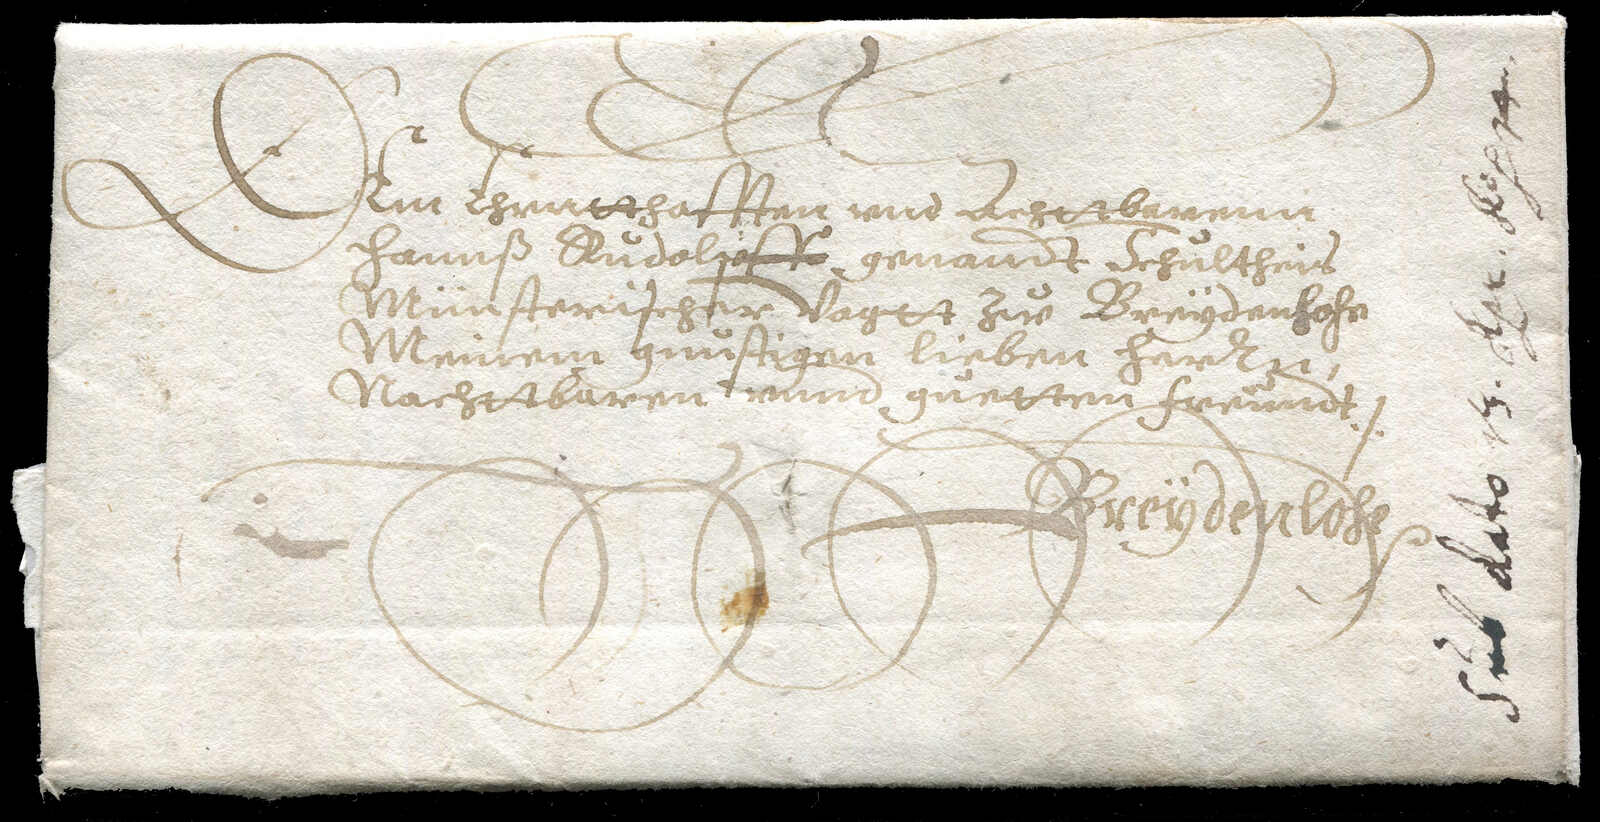 Dem Ehrnetthafften vnd Achttbarenn
Hannß Rudolff genandt Schultheis
Münsterischer Vogtt Zue Breÿdenlohe
Meinem gnustigen lieben Herrn,
Nachttbaren vnnd guetten freundt
Breÿdenlohe
Sub dato